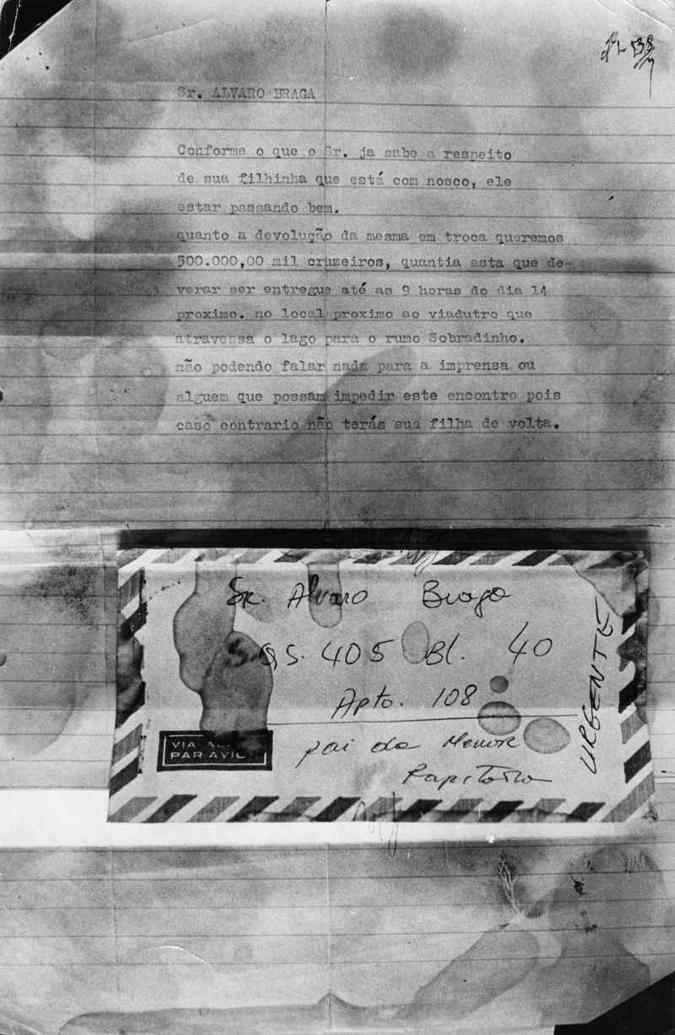 Sr. ALVARO BRAGA
Conforme o que o Sr. ja sabe a respeito
de sua filhinha que está com nosco, ele
estar passando bem.
quanto a devolução da mesma em troca queremos
500.000,00 mil cruzeiros, quantia esta que de-
verar ser entregue até as 9 horas do dia 14
proximo. no local proximo ao viadutro que
atravessa o lago para o rumo Sobradinho.
não podendo falar nada para a imprensa ou
alguem que possam impedir este encontro pois
caso contrario não terás sua filha de volta.
Sr. Alvaro Braga
S.QS. 405 Bl. 40
Apto. 108
pai da Menor
URGENTE
VIA
PAR AVION